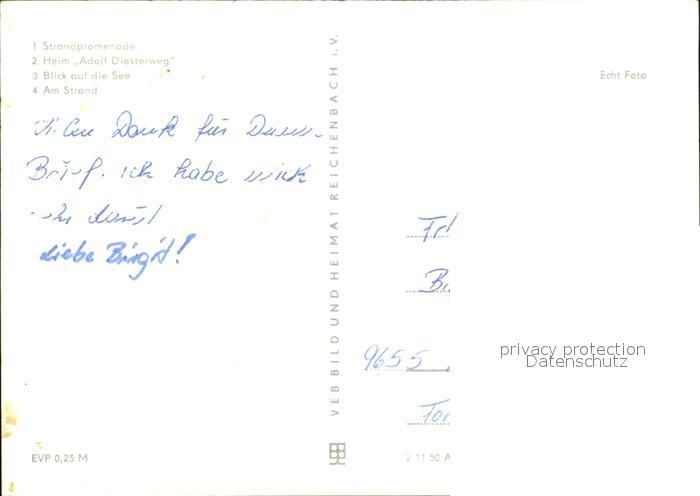 1 Strandpromenade
2 Heim „Adolf Diesterweg"
3 Blick auf die See
4 Am Strand
Echt Foto
Vielen Dank für
Brief. Ich habe mich
liebe Birgit!
VEB BILD UND HEIMAT REICHENBACH i. V.
Frl
9655
privacy protection
Datenschutz
EVP 0,25 M
V 11 50 A